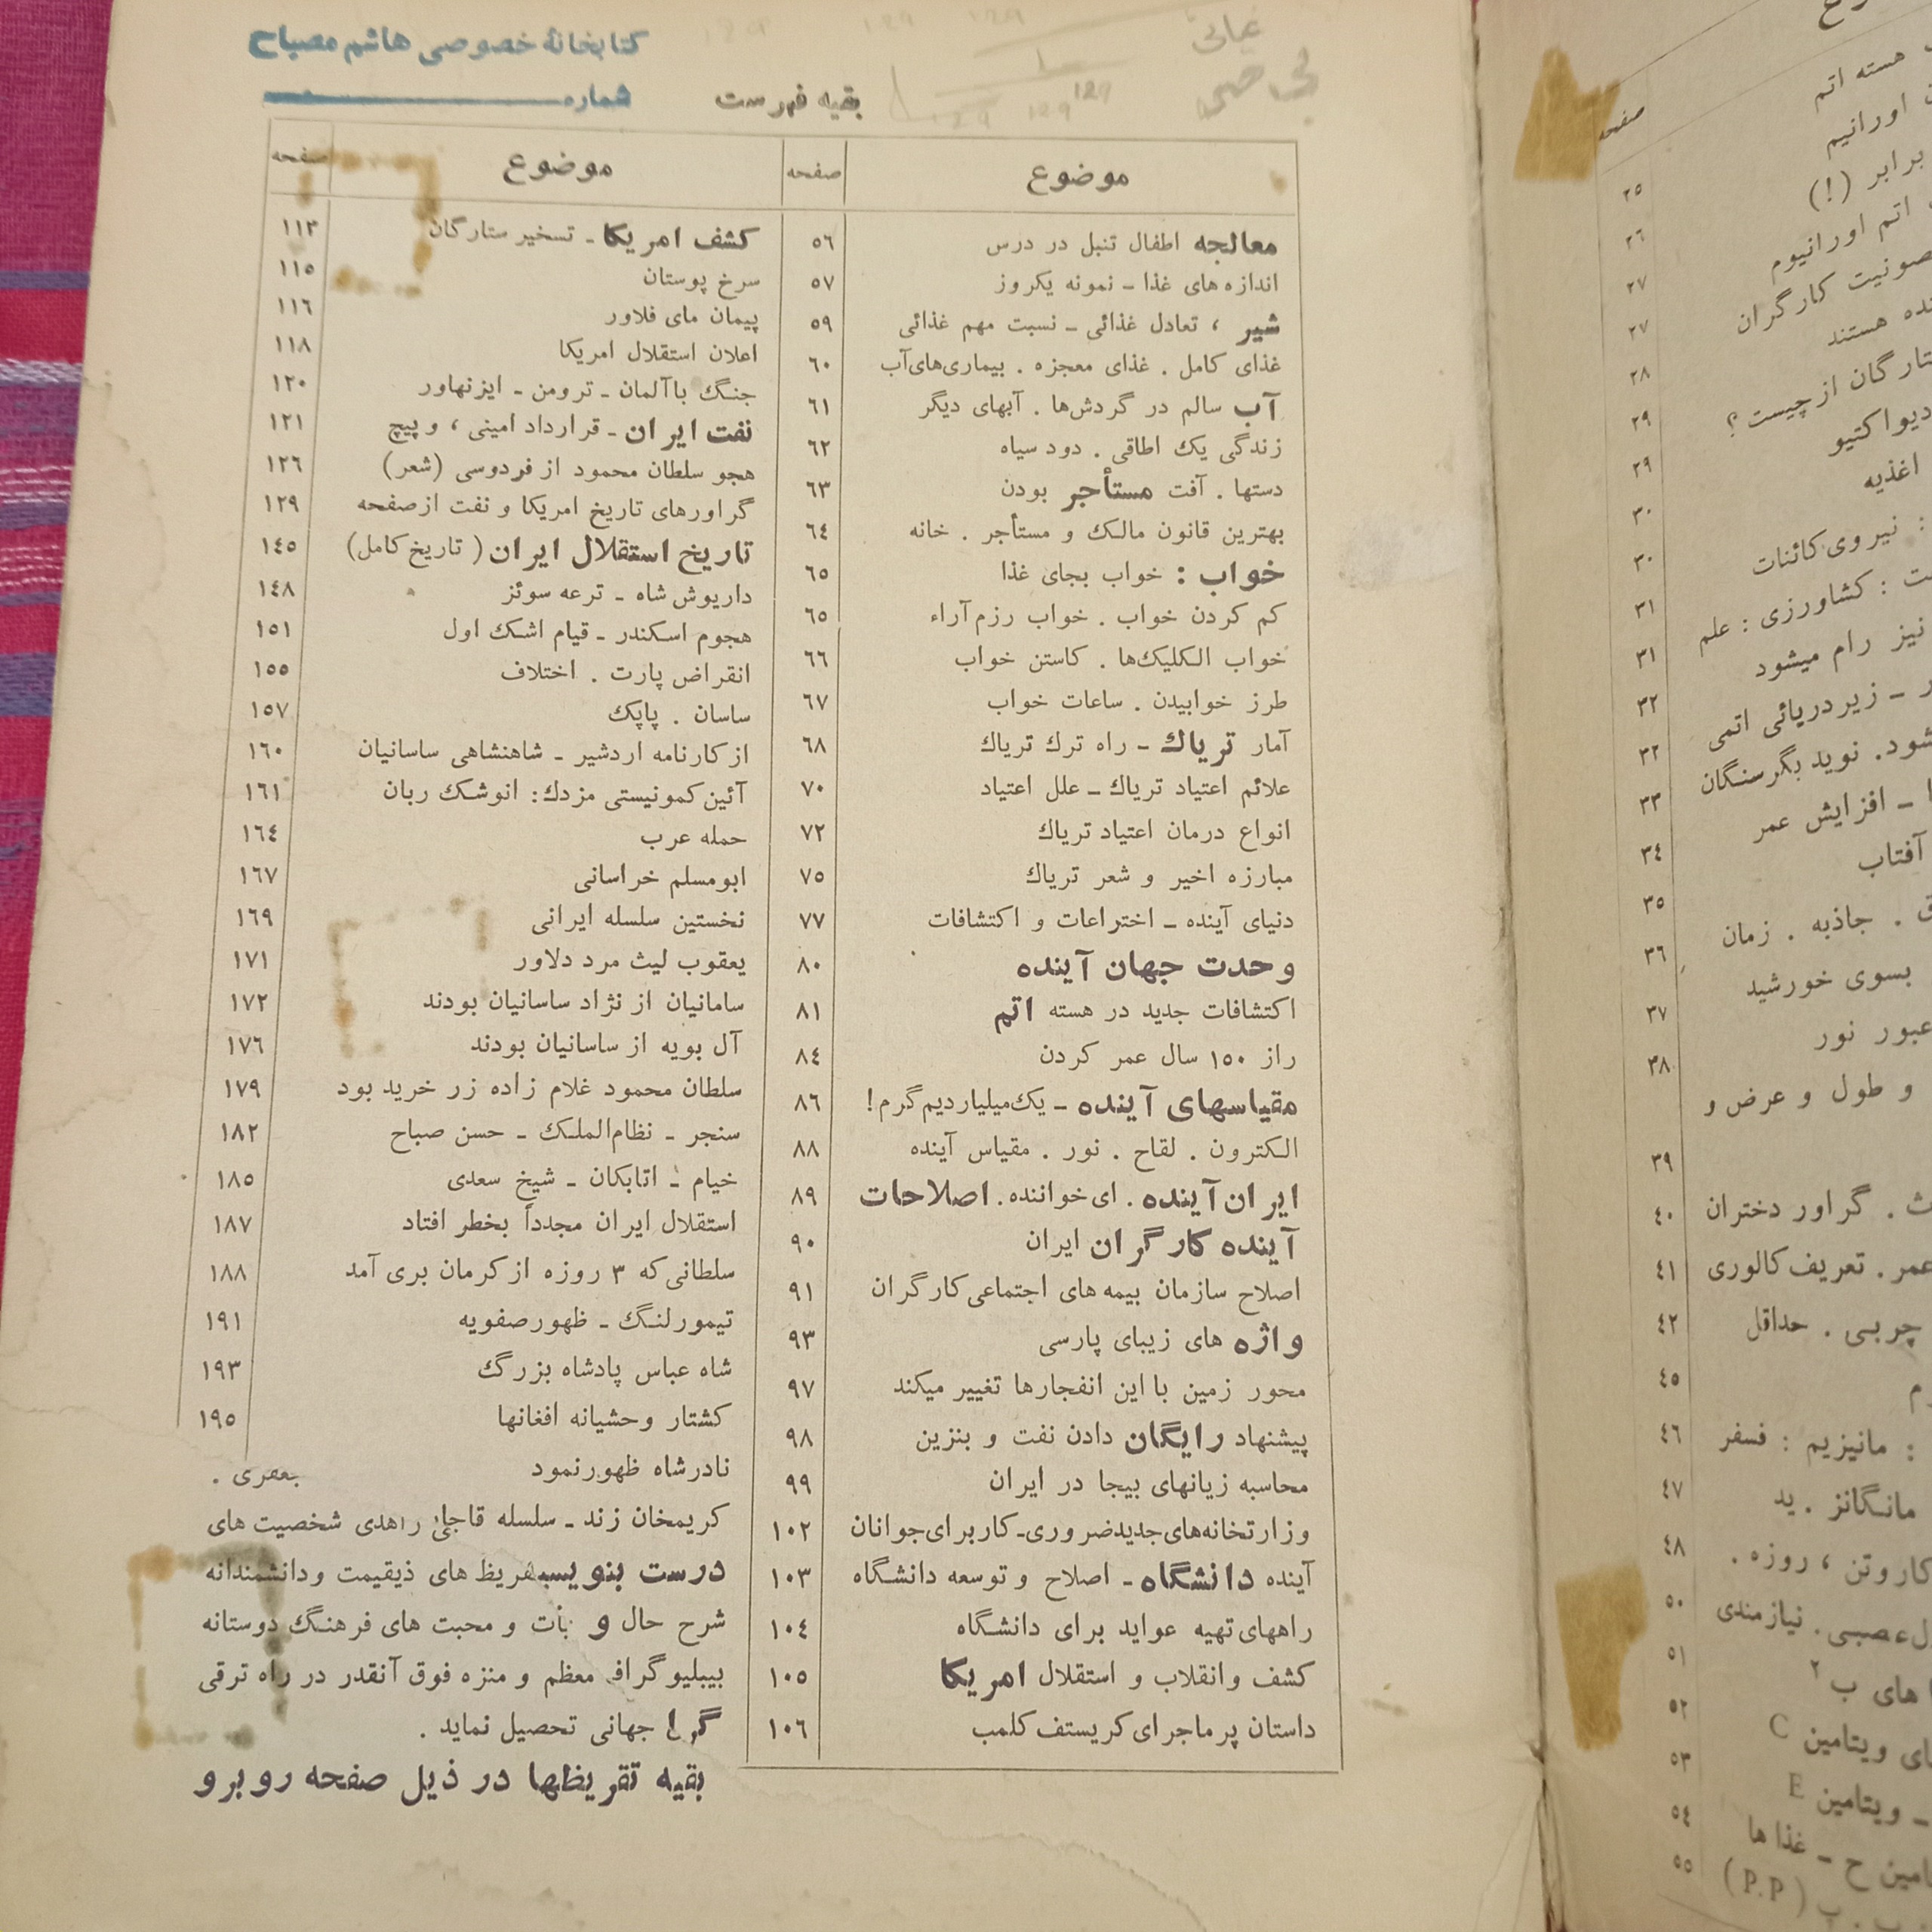 كتابخانهٔ خصوصی هاشم مصباح
شماره
بقیه فهرست
موضوع صفحه
معالجه اطفال تنبل در درس ٥٦
اندازه‌های غذا ـ نمونه یكروز ٥٧
شیر ، تعادل غذائی ـ نسبت مهم غذائی ٥٩
غذای كامل . غذای معجزه . بیماری‌های‌آب ٦٠
آب سالم در گردش‌ها . آبهای دیگر ٦١
زندگی یك اطاقی . دود سیاه ٦٢
دستها . آفت مستأجر بودن ٦٣
بهترین قانون مالك و مستأجر . خانه ٦٤
خواب : خواب بجای غذا ٦٥
كم كردن خواب . خواب رزم‌آراء ٦٥
خواب الكلیك‌ها . كاستن خواب ٦٦
طرز خوابیدن . ساعات خواب ٦٧
آمار تریاك ـ راه ترك تریاك ٦٨
علائم اعتیاد تریاك ـ علل اعتیاد ٧٠
انواع درمان اعتیاد تریاك ٧٢
مبارزه اخیر و شعر تریاك ٧٥
دنیای آینده ـ اختراعات و اكتشافات ٧٧
وحدت جهان آینده ٨٠
اكتشافات جدید در هسته اتم ٨١
راز ١٥٠ سال عمر كردن ٨٤
مقیاسهای آینده ـ یك‌میلیاردیم‌گرم! ٨٦
الكترون . لقاح . نور . مقیاس آینده ٨٨
ایران‌آینده . ای‌خواننده. اصلاحات ٨٩
آینده كارگران ایران ٩٠
اصلاح سازمان بیمه‌های اجتماعی‌كارگران ٩١
واژه های زیبای پارسی ٩٣
محور زمین با این انفجارها تغییر میكند ٩٧
پیشنهاد رایگان دادن نفت و بنزین ٩٨
محاسبه زیانهای بیجا در ایران ٩٩
وزارتخانه‌های‌جدیدضروری-كاربرای‌جوانان ١٠٢
آینده دانشگاه ـ اصلاح و توسعه دانشگاه ١٠٣
راههای تهیه عواید برای دانشگاه ١٠٤
كشف وانقلاب و استقلال امریكا ١٠٥
داستان پرماجرای كریستف كلمب ١٠٦
موضوع صفحه
كشف امریكا ـ تسخیر ستارگان ١١٣
سرخ پوستان ١١٥
پیمان مای فلاور ١١٦
اعلان استقلال امریكا ١١٨
جنگ باآلمان ـ ترومن ـ ایزنهاور ١٢٠
نفت ایران ـ قرارداد امینی ، و پیچ ١٢١
هجو سلطان محمود از فردوسی (شعر) ١٢٦
گراورهای تاریخ امریكا و نفت ازصفحه ١٢٩
تاریخ استقلال ایران ( تاریخ كامل) ١٤٥
داریوش شاه ـ ترعه سوئز ١٤٨
هجوم اسكندر ـ قیام اشك اول ١٥١
انقراض پارت . اختلاف ١٥٥
ساسان . پاپك ١٥٧
از كارنامه اردشیر ـ شاهنشاهی ساسانیان ١٦٠
آئین كمونیستی مزدك: انوشك ربان ١٦١
حمله عرب ١٦٤
ابومسلم خراسانی ١٦٧
نخستین سلسله ایرانی ١٦٩
یعقوب لیث مرد دلاور ١٧١
سامانیان از نژاد ساسانیان بودند ١٧٢
آل بویه از ساسانیان بودند ١٧٦
سلطان محمود غلام زاده زر خرید بود ١٧٩
سنجر ـ نظام‌الملك ـ حسن صباح ١٨٢
خیام ـ اتابكان ـ شیخ سعدی ١٨٥
استقلال ایران مجدداً بخطر افتاد ١٨٧
سلطانی كه ٣ روزه از كرمان بری آمد ١٨٨
تیمورلنگ ـ ظهورصفویه ١٩١
شاه عباس پادشاه بزرگ ١٩٣
كشتار وحشیانه افغانها ١٩٥
نادرشاه ظهورنمود
كریمخان زند ـ سلسله شخصیت های
درست های ذیقیمت ودانشمندانه
شرح حال و و محبت های فرهنگ دوستانه
معظم و منزه فوق آنقدر در راه ترقی
جهانی تحصیل نماید .
بقیه تقریظها در ذیل صفحه روبرو
صفحه
هسته اتم ٢٥
اورانیم ٢٦
برابر (!) ٢٧
اتم اورانیوم ٢٧
كارگران ٢٨
هستند ٢٩
از چیست ؟ ٢٩
٣٠
اغذیه ٣٠
: نیروی كائنات ٣١
: كشاورزی : علم ٣١
نیز رام میشود ٣٢
ـ زیردریائی اتمی ٣٢
نوید بگرسنگان ٣٣
ـ افزایش عمر ٣٤
آفتاب ٣٥
. جاذبه . زمان ٣٦
بسوی خورشید ٣٧
عبور نور ٣٨
و طول و عرض و ٣٩
. گراور دختران ٤٠
عمر . تعریف كالوری ٤١
چربی . حداقل ٤٢
٤٥
: مانیزیم : فسفر ٤٦
مانگانز . ید ٤٧
كاروتن ، روزه . ٤٨
عصبی . نیازمندی ٥٠
های ب ٢ ٥١
ویتامین C ٥٢
ـ ویتامین E ٥٣
ح ـ غذا ها ٥٤
(P.P) ٥٥